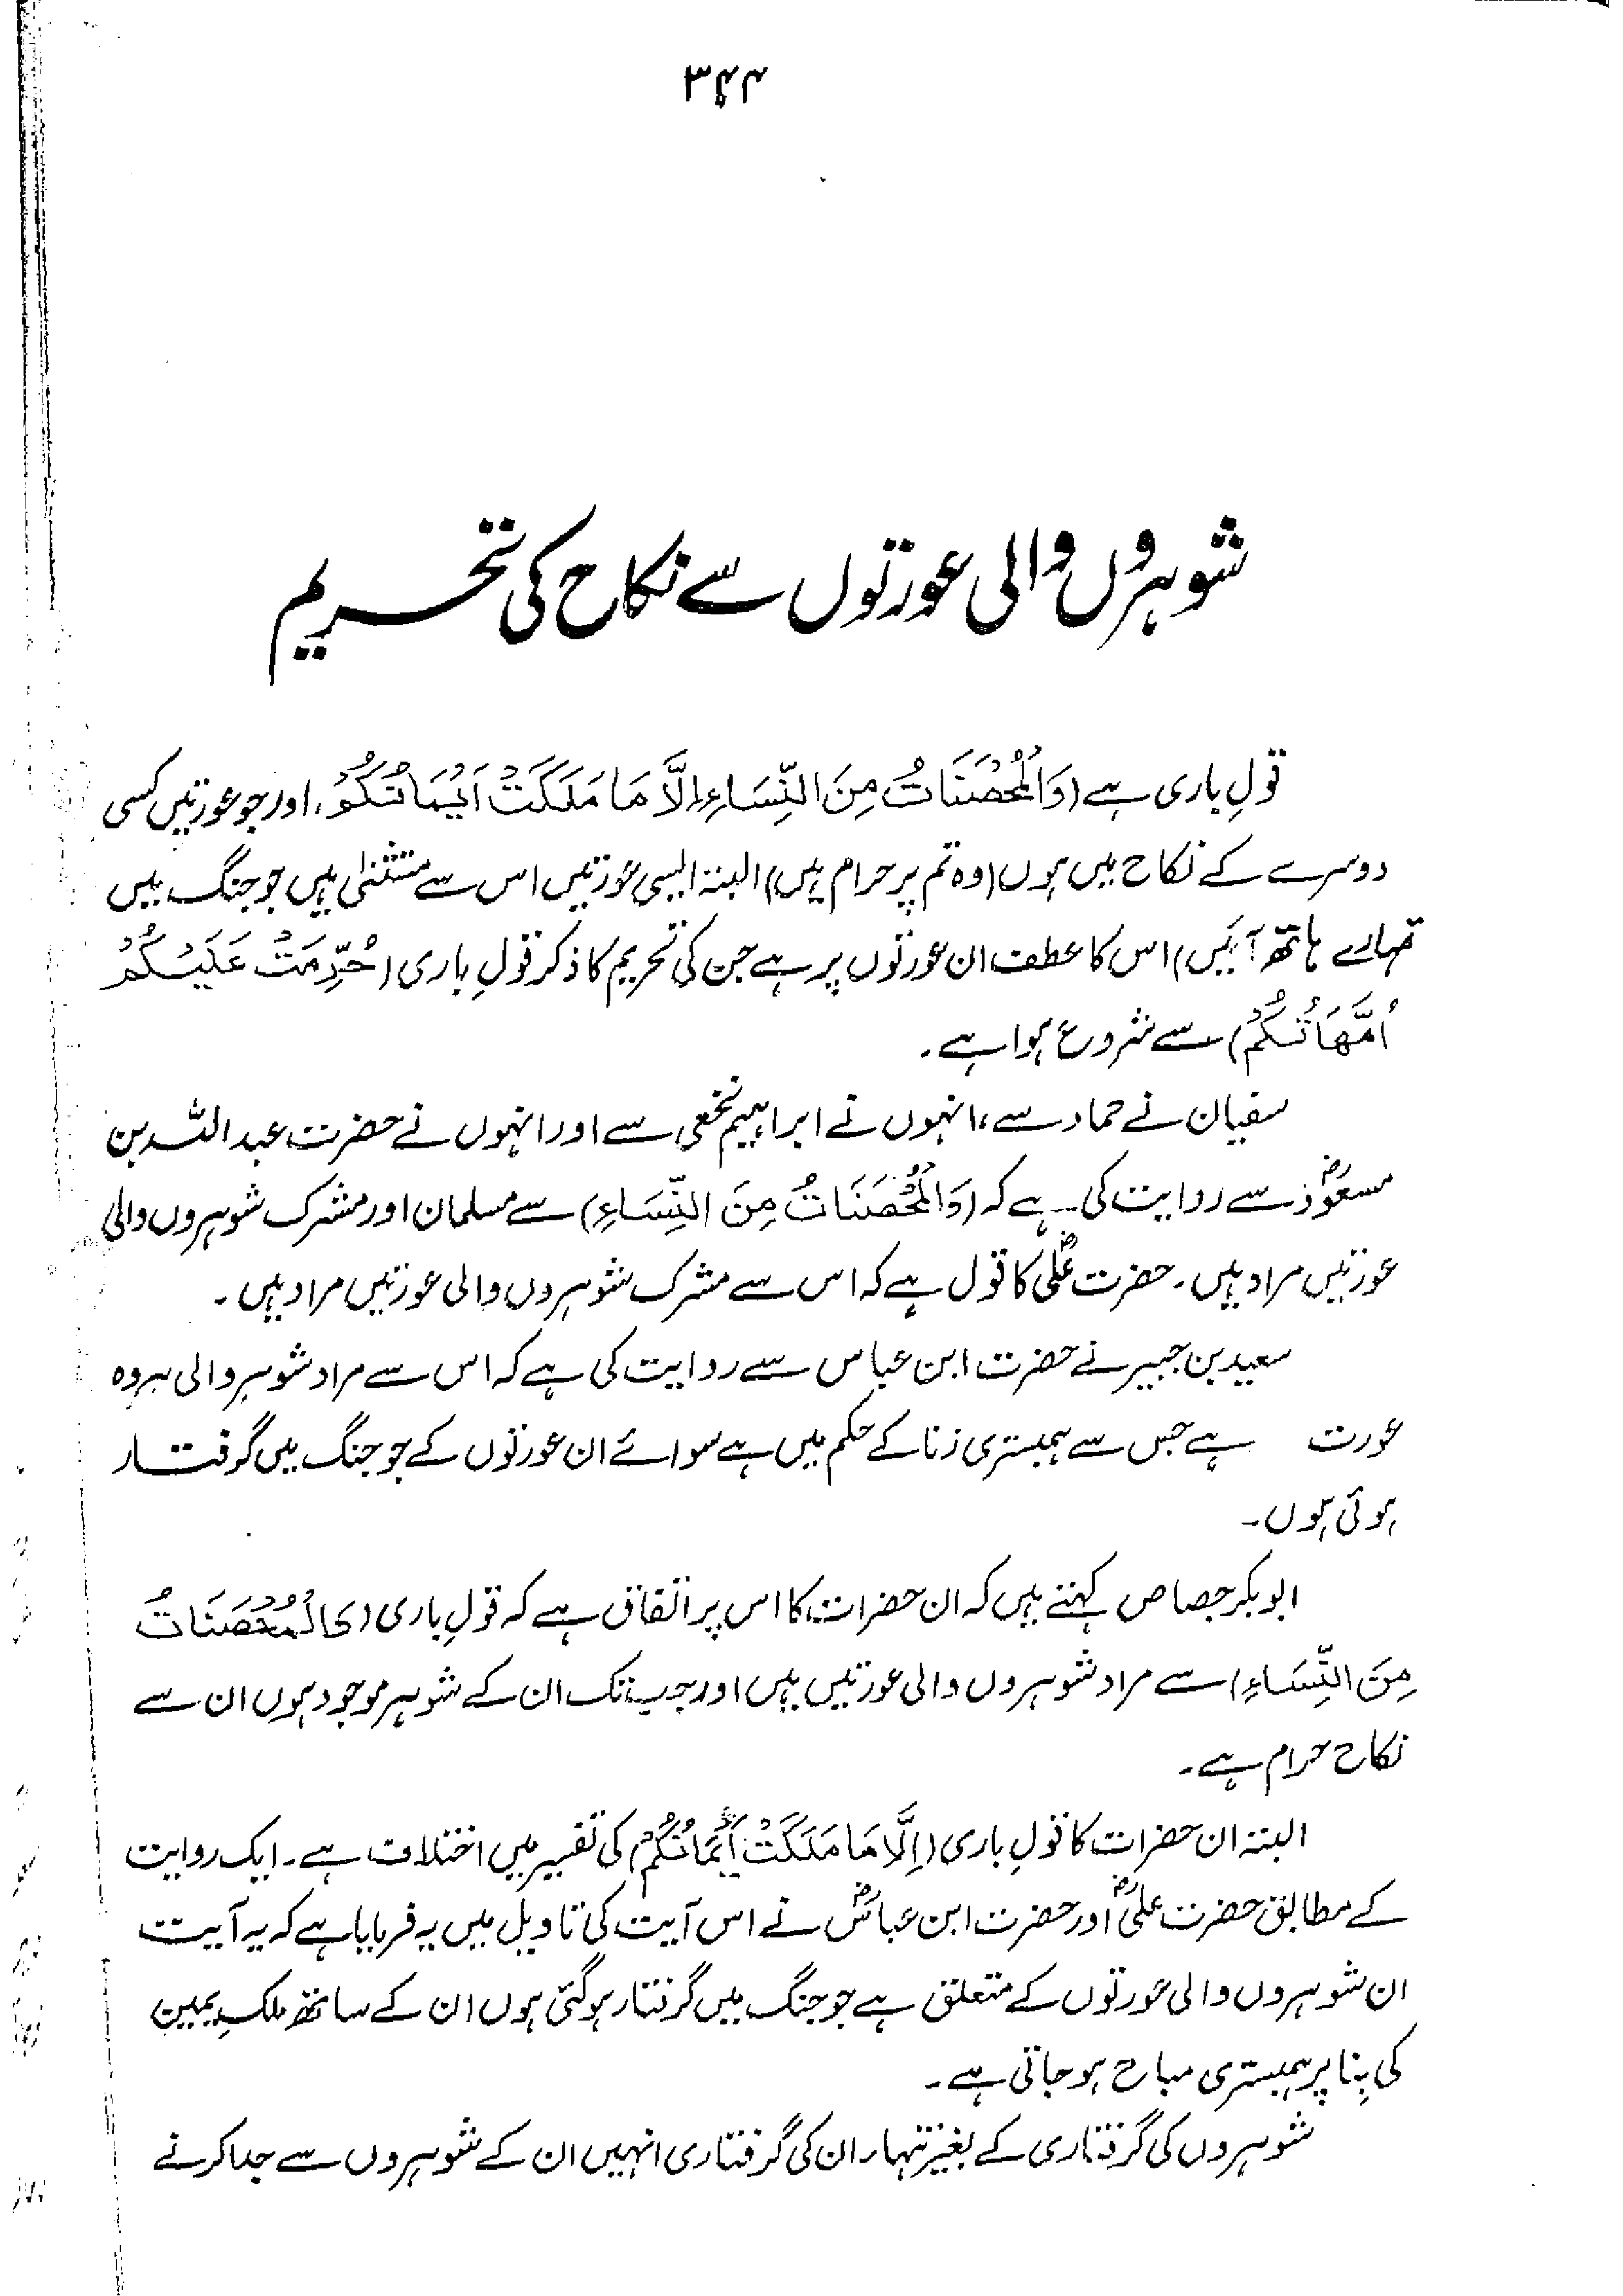 ۳۴۴
شوہروں والی عورتوں سے نکاح کی تحریم
قولِ باری ہے (وَالْمُحْصَنَاتُ مِنَ النِّسَاءِ اِلَّا مَا مَلَكَتْ اَيْمَانُكُمْ، اور جو عورتیں کسی
دوسرے کے نکاح میں ہوں (وہ تم پر حرام ہیں) البتہ ایسی عورتیں اس سے مستثنیٰ ہیں جو جنگ میں
تمہارے ہاتھ آئیں) اس کا عطف ان عورتوں پر ہے جن کی تحریم کا ذکر قولِ باری (حُرِّمَتْ عَلَيْكُمْ
اُمَّهَاتُكُمْ) سے شروع ہوا ہے۔
سفیان نے حماد سے، انہوں نے ابراہیم نخعی سے اور انہوں نے حضرت عبداللہ بن
مسعودؓ سے روایت کی ہے کہ (وَالْمُحْصَنَاتُ مِنَ النِّسَاءِ) سے مسلمان اور مشرک شوہروں والی
عورتیں مراد ہیں۔ حضرت علیؓ کا قول ہے کہ اس سے مشرک شوہروں والی عورتیں مراد ہیں۔
سعید بن جبیر نے حضرت ابن عباس سے روایت کی ہے کہ اس سے مراد شوہر والی ہر وہ
عورت ہے جس سے ہمبستری زنا کے حکم میں ہے سوائے ان عورتوں کے جو جنگ میں گرفتار
ہوئی ہوں۔
ابوبکر جصاص کہتے ہیں کہ ان حضرات کا اس پر اتفاق ہے کہ قولِ باری (وَالْمُحْصَنَاتُ
مِنَ النِّسَاءِ) سے مراد شوہروں والی عورتیں ہیں اور جب تک ان کے شوہر موجود ہوں ان سے
نکاح حرام ہے۔
البتہ ان حضرات کا قولِ باری (اِلَّا مَا مَلَكَتْ اَيْمَانُكُمْ) کی تفسیر میں اختلاف ہے۔ ایک روایت
کے مطابق حضرت علیؓ اور حضرت ابن عباسؓ نے اس آیت کی تاویل میں یہ فرمایا ہے کہ یہ آیت
ان شوہروں والی عورتوں کے متعلق ہے جو جنگ میں گرفتار ہو گئی ہوں ان کے ساتھ ملکِ یمین
کی بِنا پر ہمبستری مباح ہو جاتی ہے۔
شوہروں کی گرفتاری کے بغیر تنہا، ان کی گرفتاری انہیں ان کے شوہروں سے جدا کرنے